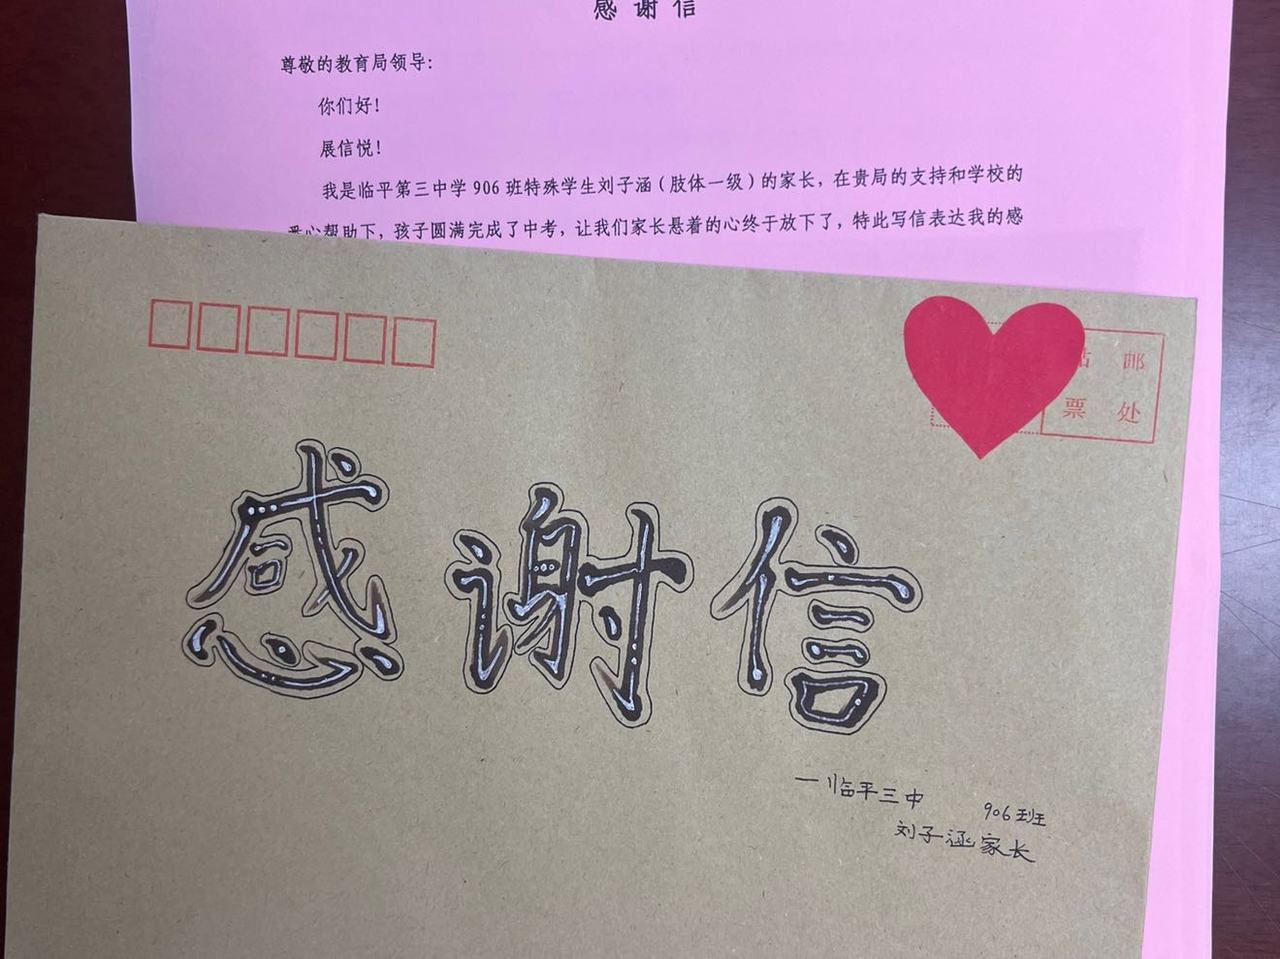 感谢信
尊敬的教育局领导：
你们好！
展信悦！
我是临平第三中学906班特殊学生刘子涵（肢体一级）的家长，在贵局的支持和学校的
悉心帮助下，孩子圆满完成了中考，让我们家长悬着的心终于放下了，特此写信表达我的感
贴 邮
票 处
感谢信
一临平三中 906班
刘子涵家长